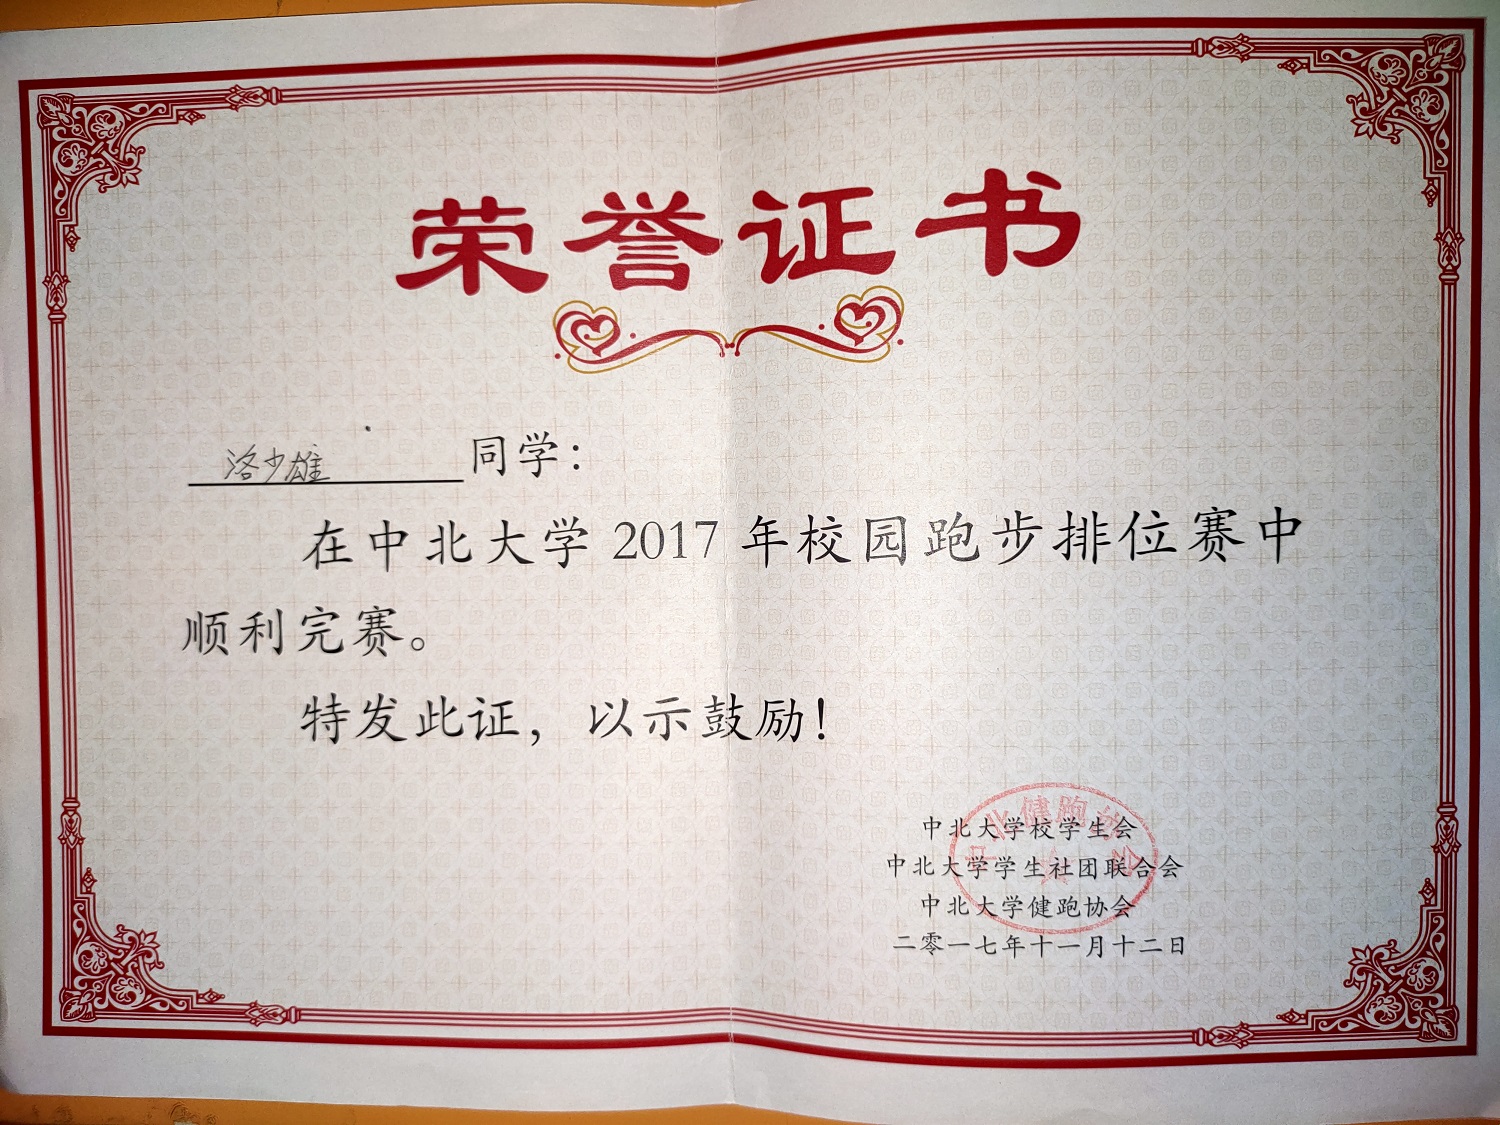 荣誉证书
洛少雄 同学：
在中北大学 2017 年校园跑步排位赛中
顺利完赛。
特发此证，以示鼓励！
中北大学校学生会
中北大学学生社团联合会
中北大学健跑协会
二零一七年十一月十二日
中北健跑协会